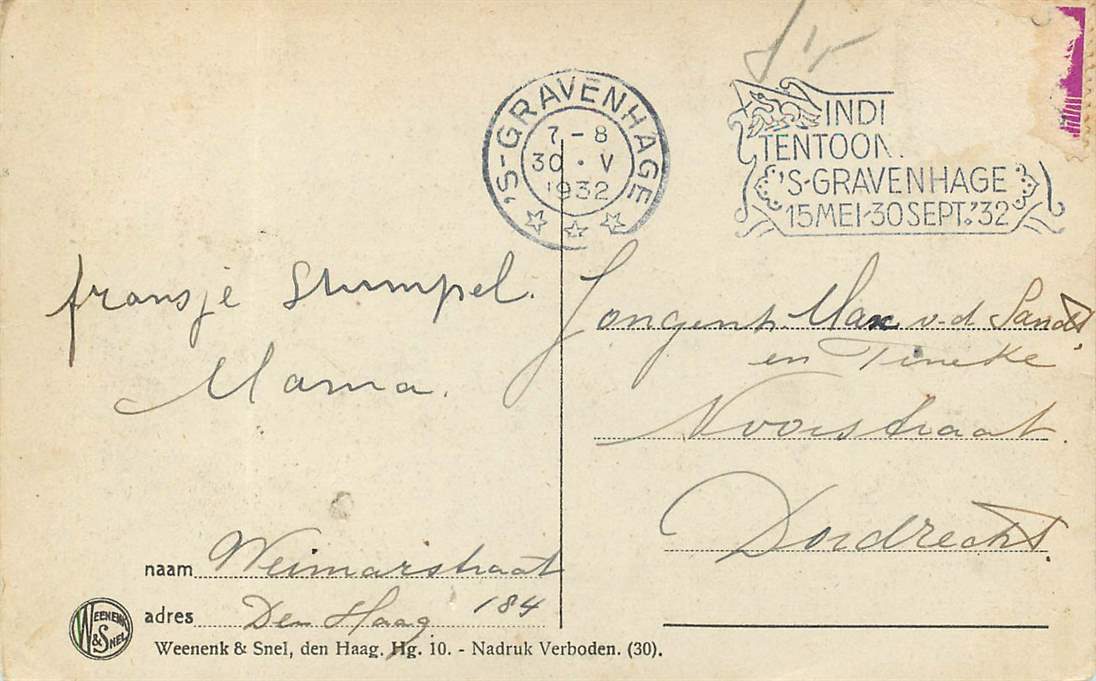 'S-GRAVENHAGE
7-8
30 · V
1932
INDI
TENTOON
'S-GRAVENHAGE
15 MEI-30 SEPT. '32
fransje Stumpel.
Mama.
Jongenh. Max v.d Sandt
en Tineke
Voorstraat.
Dordrecht.
naam Weimarstraat
adres Den Haag 184
WEENENK & SNEL
Weenenk & Snel, den Haag. Hg. 10. - Nadruk Verboden. (30).